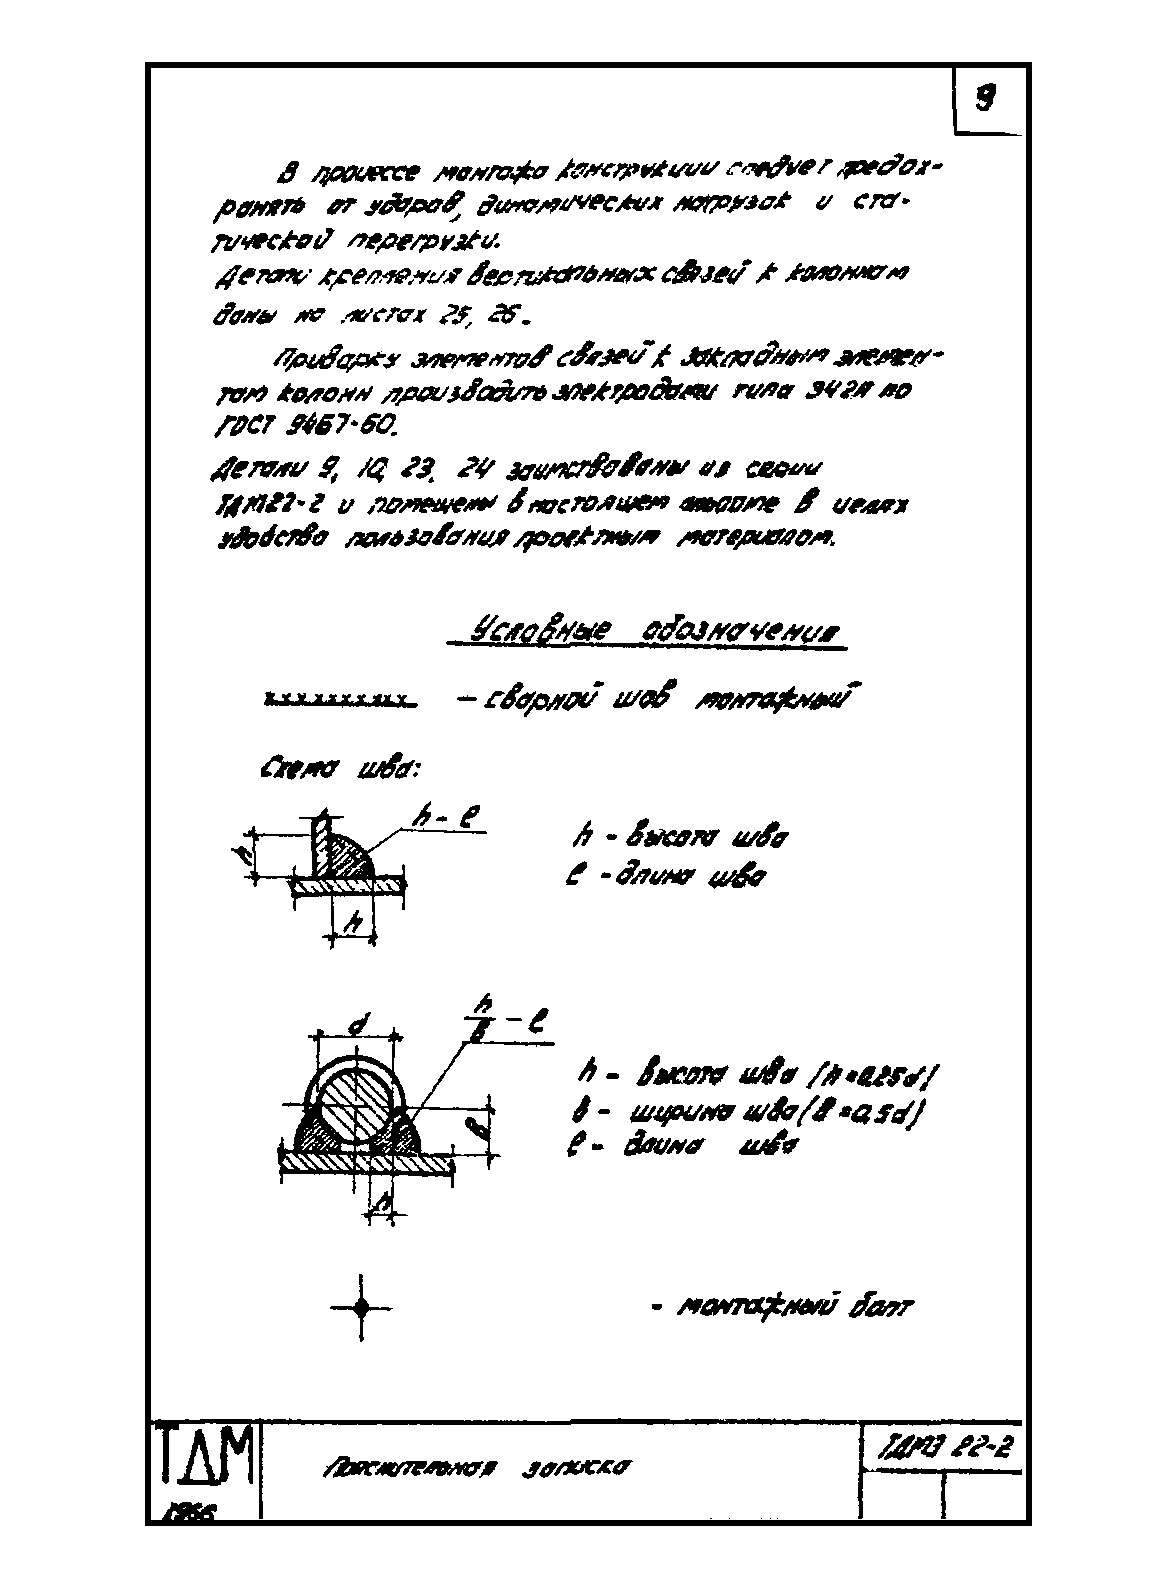 9
В процессе монтажа конструкции следует предох-
ранять от ударов, динамических нагрузок и ста-
тической перегрузки.
Детали крепления вертикальных связей к колоннам
даны на листах 25, 26.
Приварку элементов связей к закладным элемен-
там колонн производить электродами типа Э42А по
ГОСТ 9467-60.
Детали 9, 10, 23, 24 заимствованы из серии
22-2 и помещены в настоящем в целях
удобства пользования проектным материалом.
Условные обозначения
- сварной шов монтажный
Схема шва:
h - ℓ
h
h
h - высота шва
ℓ - длина шва
h
в
- ℓ
d
в
h
h - высота шва (h=0,25d)
в - ширина шва (в=0,5d)
ℓ - длина шва
- монтажный болт
ТДМ
1966
Пояснительная записка
22-2